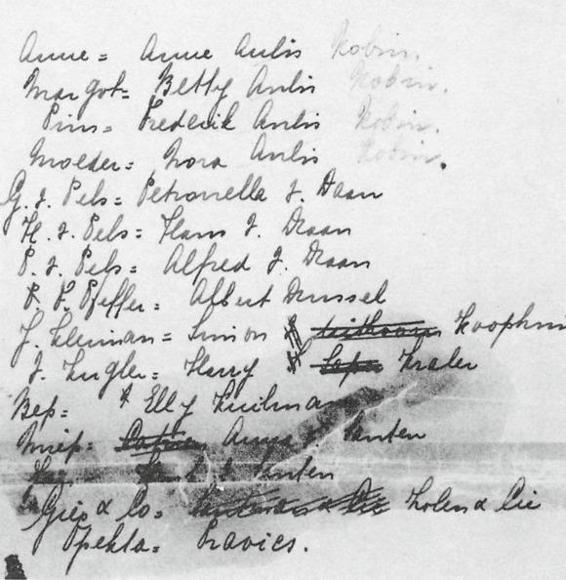 Anne = Anne Aulis Robin.
Margot = Betty Aulis Robin.
Pim = Frederik Aulis Robin.
Moeder = Nora Aulis Robin.
G. v. Pels = Petronella v. Daan
H. v. Pels = Hans v. Daan
P. v. Pels = Alfred v. Daan
F. Pfeffer = Albert Dussel
J. Kleiman = Simon Koophuis
V. Kugler = Harry Kraler
Bep = Elly Kuilman
Miep = Anna v. Santen
v. Santen
Gies & Co = Kolen & Cie
Opekta = Travies.